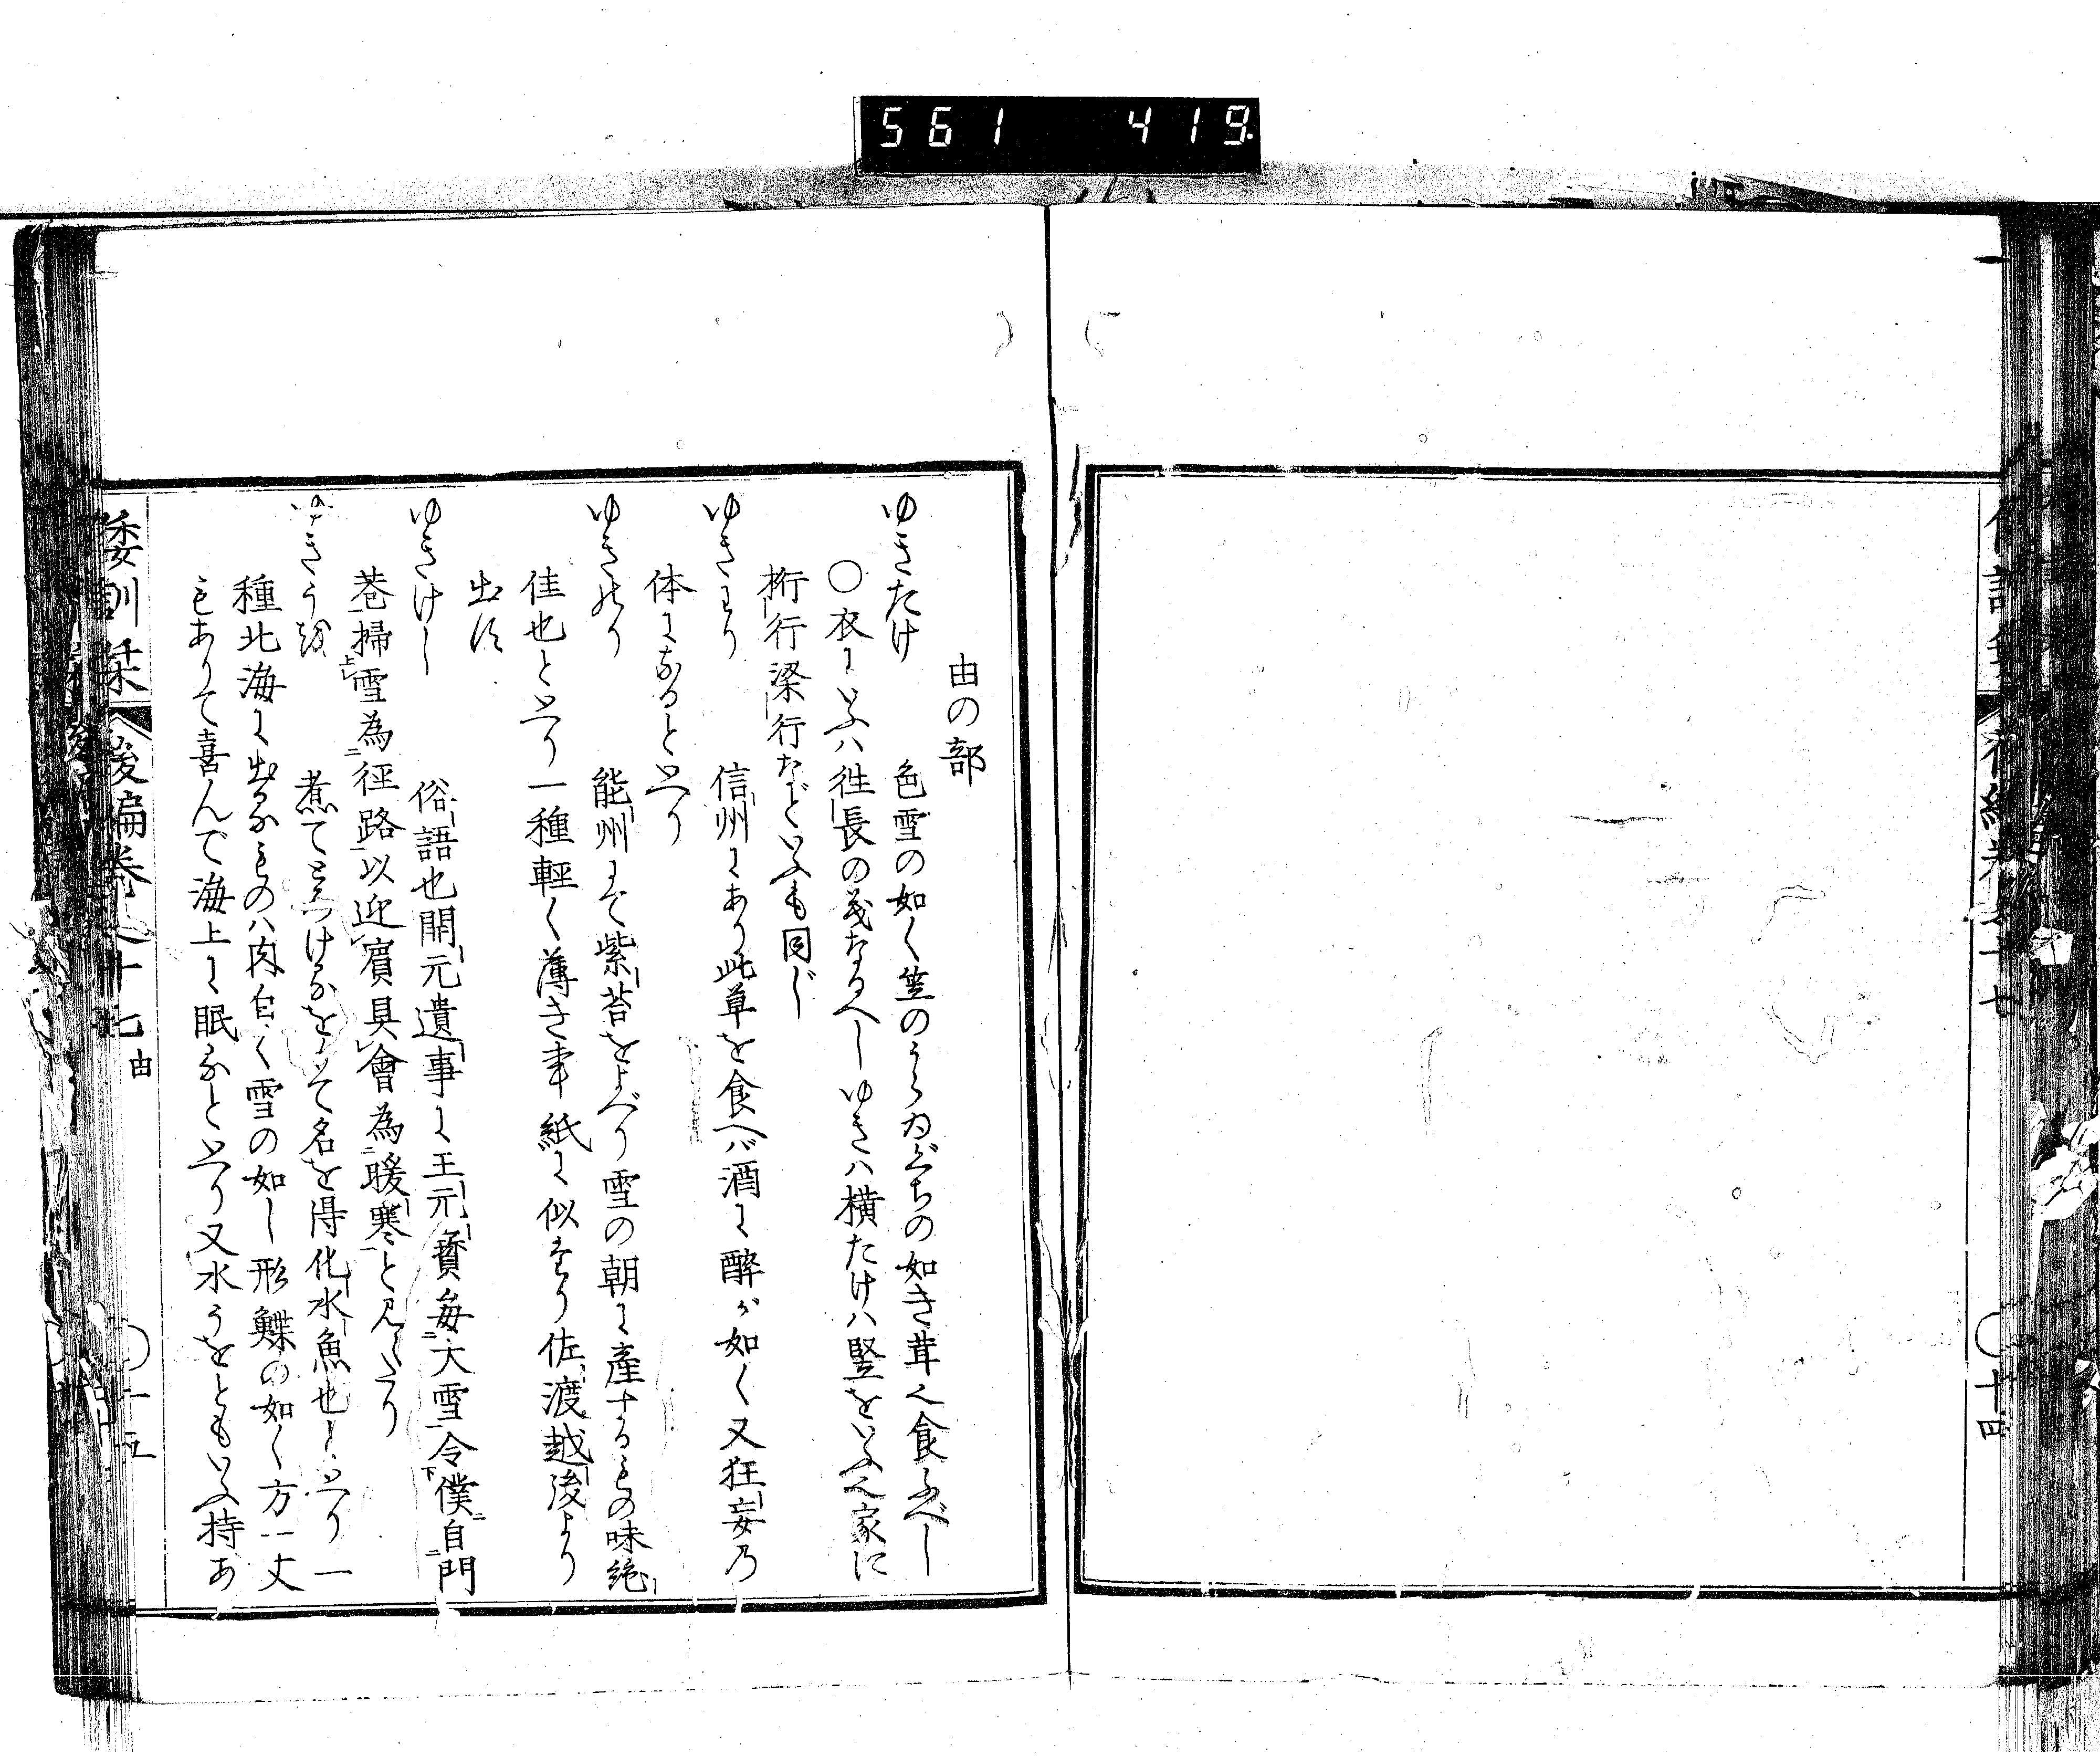 561 419
十四
由の部
ゆきたけ 色雪の如く笠のうらゐぐちの如き茸也食ふべし
○衣にいふハ往長の義なるへしゆきハ横たけハ竪をいふ也家に
桁行梁行などいふも同じ
ゆきわり 信州にあり此草を食へバ酒に酔が如く又狂妄乃
体になるといへり
ゆきのり 能州にて紫苔をよべり雪の朝に産するもの味絶
佳也といへり一種軽く薄き事紙に似たり佐渡越後より
出す
ゆきけし 俗語也開元遺事に王元寳毎大雪令僕自門
巷掃雪為径路以迎賓具會為暖寒と見えたり
ゆきうを 煮てこゞつけるをもて名を得化水魚也といへり一
種北海に出るものハ肉白く雪の如し形鰈の如く方一丈
もありて喜んで海上に眠るといへり又水うをともいふ持あ
倭訓栞 後編巻之十七 由 十五